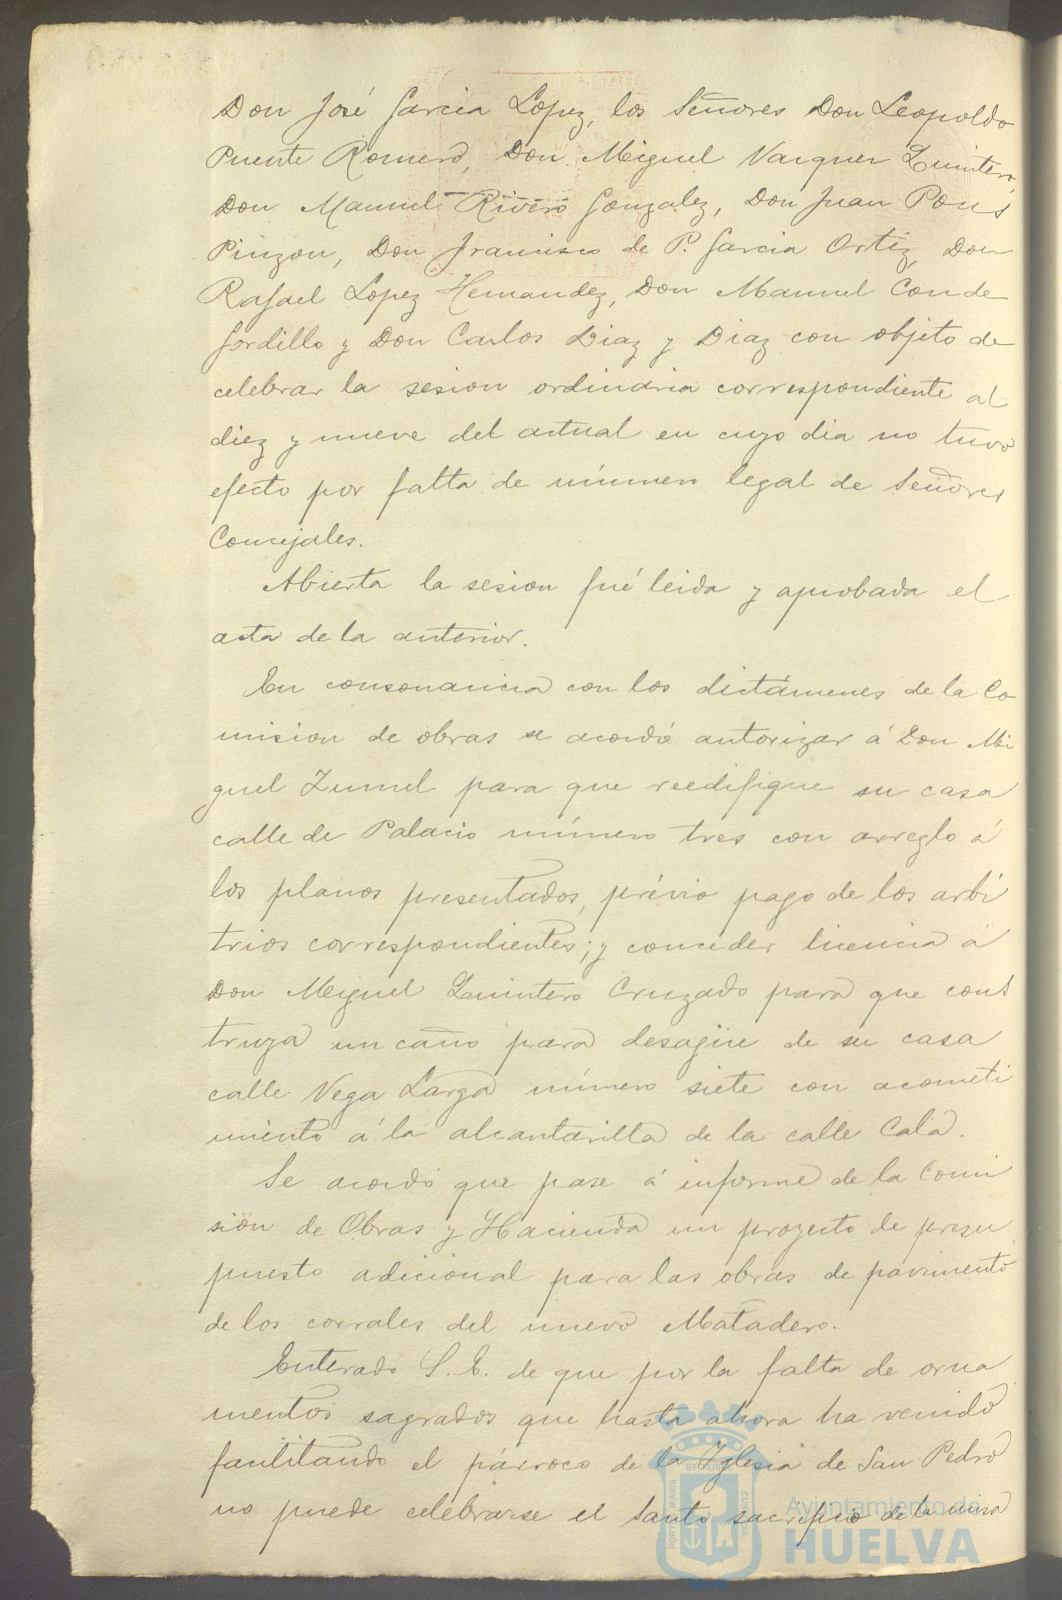 Don José Garcia Lopez, los Señores Don Leopoldo
Puente Romero, Don Miguel Vazquez Quintero,
Don Manuel Rivero Gonzalez, Don Juan Pons
Pinzon, Don Francisco de P. Garcia Ortiz, Don
Rafael Lopez Hernandez, Don Manuel Conde
Gordillo y Don Carlos Diaz y Diaz con objeto de
celebrar la sesion ordinaria correspondiente al
diez y nueve del actual en cuyo dia no tuvo
efecto por falta de número legal de Señores
Concejales.
Abierta la sesion fué leida y aprobada el
acta de la anterior.
En consonancia con los dictámenes de la Co
mision de obras se acordó autorizar á Don Mi
guel Zumel para que reedifique su casa
calle de Palacio número tres con arreglo á
los planos presentados, prévio pago de los arbi
trios correspondientes; y conceder licencia á
Don Miguel Quintero Cruzado para que cons
truya un caño para desagüe de su casa
calle Vega Larga número siete con acometi
miento á la alcantarilla de la calle Cala.
Se acordó que pase á informe de la Comi
sion de Obras y Hacienda un proyecto de presu
puesto adicional para las obras de pavimento
de los corrales del nuevo Matadero.
Enterado S. E. de que por la falta de orna
mentos sagrados que hasta ahora ha venido
facilitando el párroco de la Iglesia de San Pedro
no puede celebrarse el Santo sacrificio de la misa
Ayuntamiento de
HUELVA